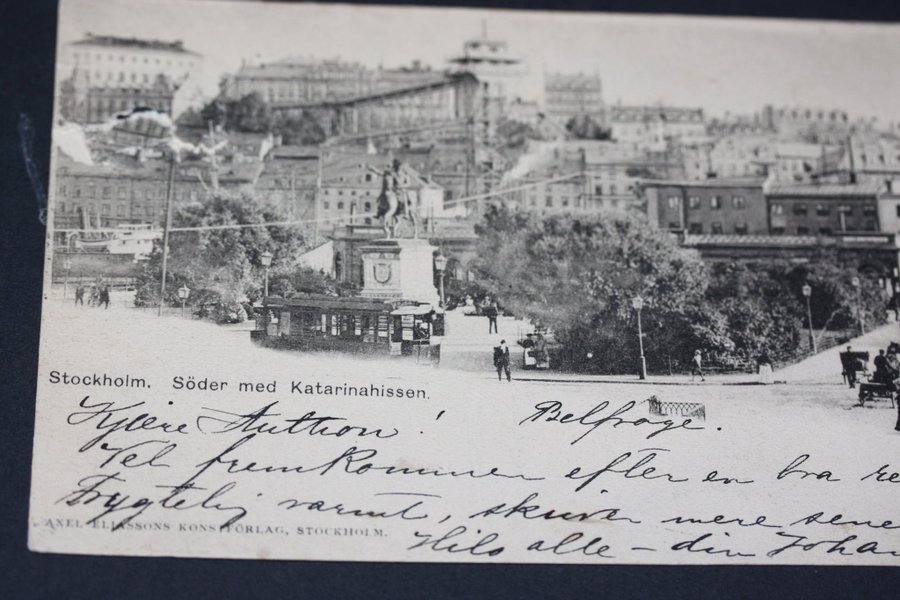 Stockholm. Söder med Katarinahissen.
Kjære Anthon! Belfrage.
Vel fremkommen efter en bra re
Frygtelig varmt, skriver mere sene
AXEL ELIASSONS KONSTFÖRLAG, STOCKHOLM.
Hils alle – din Johan